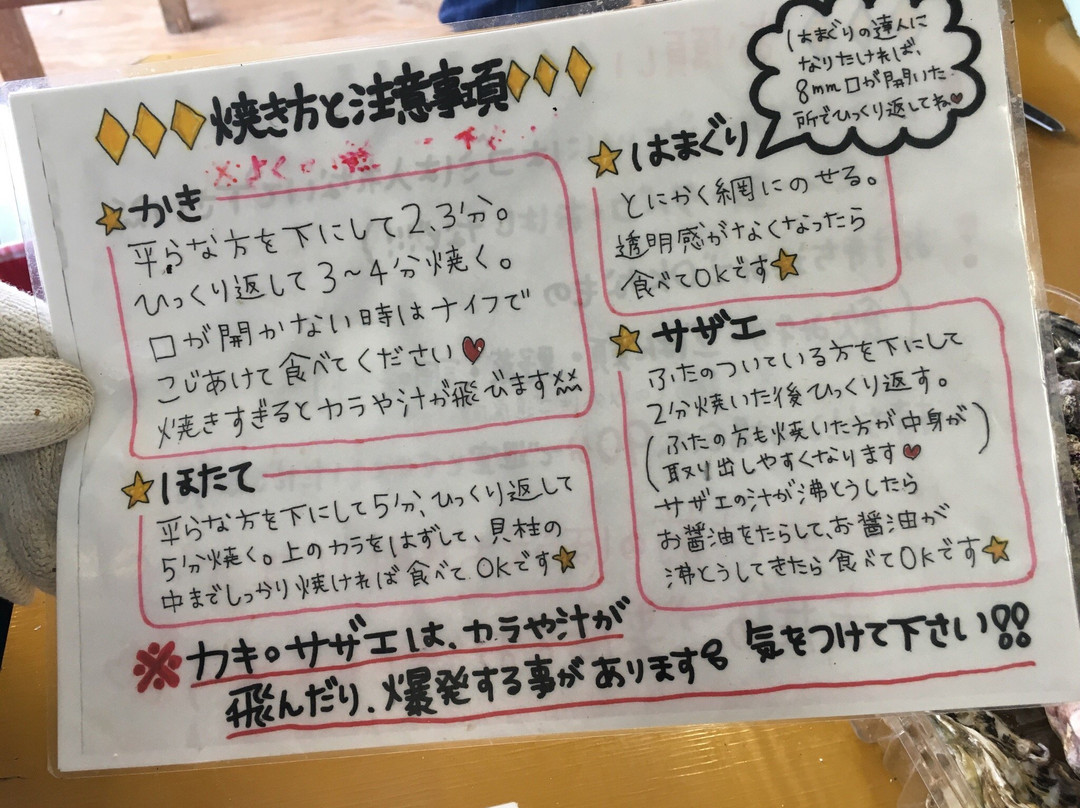 焼き方と注意事項
かき
平らな方を下にして2.3分。
ひっくり返して3~4分焼く。
口が開かない時はナイフで
こじあけて食べてください♥
焼きすぎるとカラや汁が飛びます
ほたて
平らな方を下にして5分、ひっくり返して
5分焼く。上のカラをはずして、貝柱の
中までしっかり焼ければ食べてOKです
はまぐりの達人に
なりたければ、
8mm口が開いた
所でひっくり返してね♥
はまぐり
とにかく網にのせる。
透明感がなくなったら
食べてOKです
サザエ
ふたのついている方を下にして
2分焼いた後ひっくり返す。
(ふたの方も焼いた方が中身が
取り出しやすくなります♥)
サザエの汁が沸とうしたら
お醤油をたらして、お醤油が
沸とうしてきたら食べてOKです
※カキ。サザエは、カラや汁が
飛んだり、爆発する事があります 気をつけて下さい!!